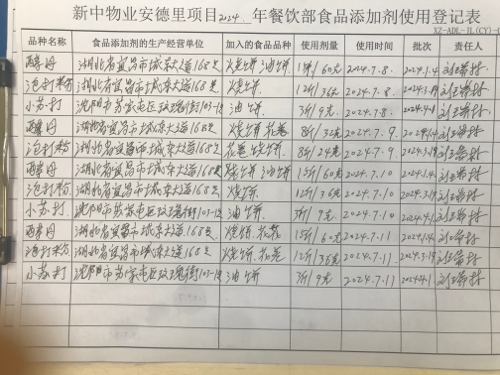 新中物业安德里项目2024年餐饮部食品添加剂使用登记表
XZ-ADL-JL(CY)-
品种名称 食品添加剂的生产经营单位 加入的食品品种 使用剂量 使用时间 批次 责任人
酵母 湖北省宜昌市城东大道168号 烧饼 油饼 60克 2024.7.8. 2024.1.4
泡打粉 湖北省宜昌市城东大道168号 烧饼 12斤/36克 2024.7.8. 2024.3.19
小苏打 沈阳市苏家屯区玫瑰街103-12 油饼 3斤/9克 2024.7.8
酵母 湖北省宜昌市城东大道168号 烧饼 花卷 8斤/32克 2024.7.9.
泡打粉 湖北省宜昌市城东大道168号 花卷 烧饼 8斤/24克 2024.7.9. 2024.3.19
酵母 湖北省宜昌市城东大道168号 烧饼 油饼 15斤/60克 2024.7.10 2024.1.4.
泡打粉 湖北省宜昌市城东大道168号 烧饼 12斤/36克 2024.7.10 2024.3.19
小苏打 沈阳市苏家屯区玫瑰街103-12 油饼 3斤/9克 2024.7.10
酵母 湖北省宜昌市城东大道168号 烧饼 花卷 15斤/60克 2024.7.11 2024.1.4.
泡打粉 湖北省宜昌市城东大道168号 烧饼 花卷 12斤/36克 2024.7.11 2024.3.19
小苏打 沈阳市苏家屯区玫瑰街103-12 油饼 3斤/9克 2024.7.11